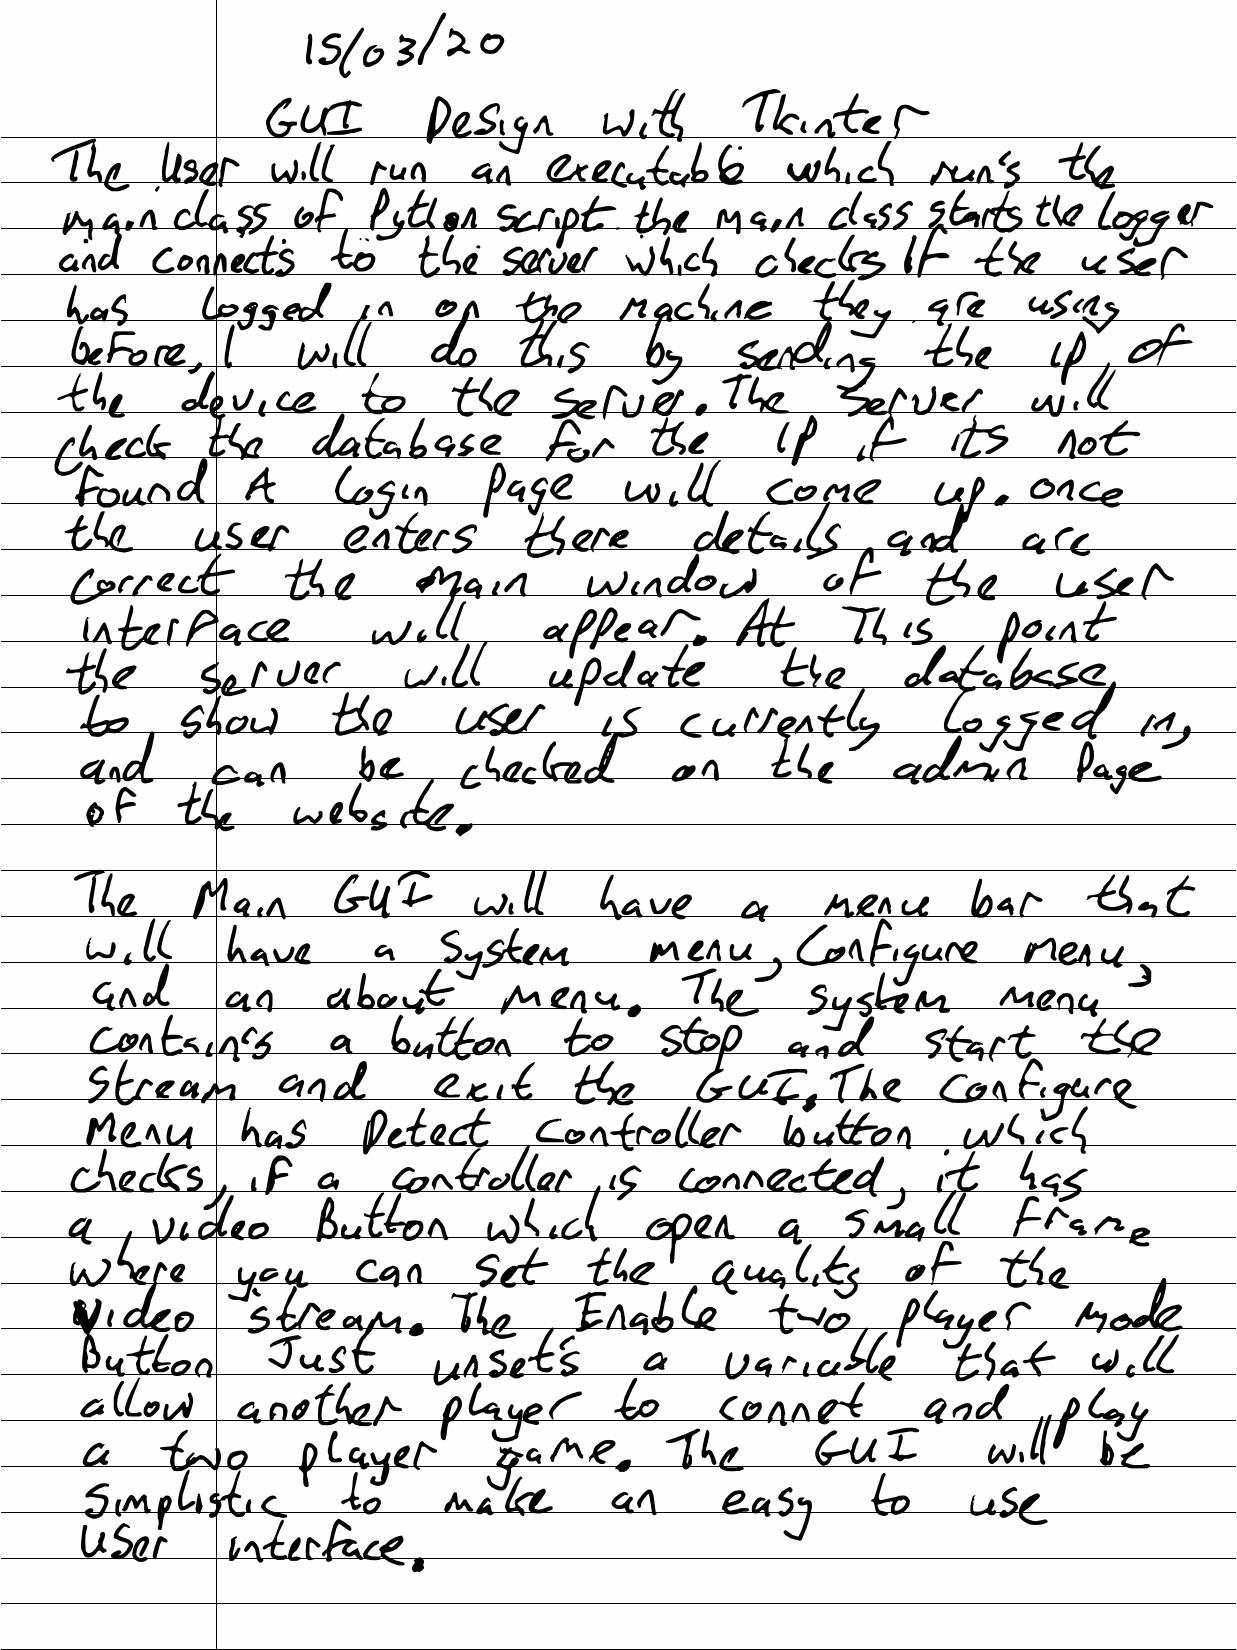 15/03/20
GUI Design with Tkinter
The User will run an executable which run's the
main class of Python script. the main class starts the logger
and connects to the server which checks If the user
has logged in on the machine they are using
before, I will do this by sending the IP of
the device to the server. The Server will
check the database for the IP if its not
found A login page will come up. once
the user enters there details and are
correct the main window of the user
interface will appear. At This point
the server will update the database
to show the user is currently logged in,
and can be checked on the admin Page
of the website.
The Main GUI will have a menu bar that
will have a System menu, Configure menu,
and an about menu. The system menu
contain's a button to stop and start the
stream and exit the GUI. The Configure
Menu has Detect Controller button which
checks, if a controller is connected, it has
a video Button which open a small frame
where you can set the quality of the
video stream. The Enable two player mode
Button Just unset's a variable that will
allow another player to connet and play
a two player game. The GUI will be
simplistic to make an easy to use
user interface.